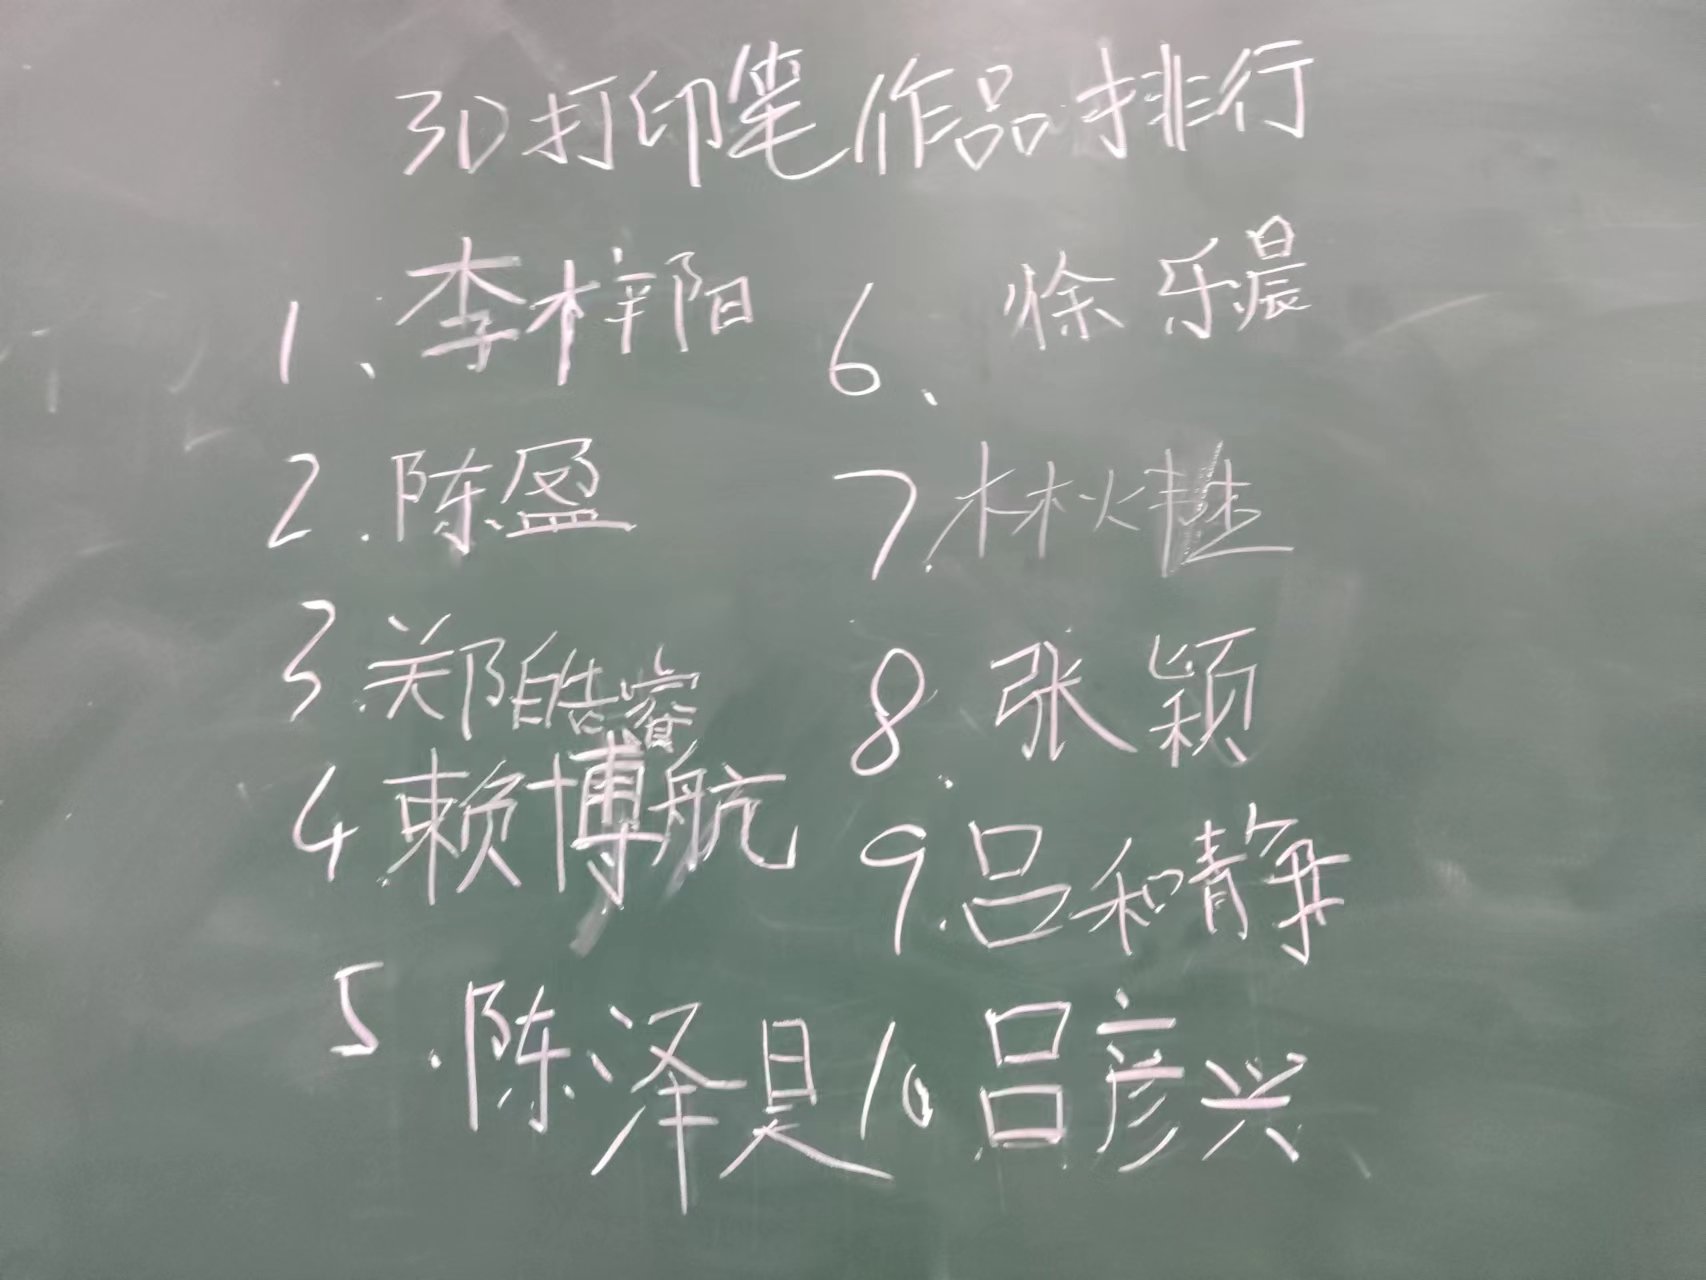 3D打印笔作品排行
1、李梓阳
2.陈盈
3.郑皓睿
4.赖博航
5.陈泽昊
6、徐乐晨
7.林
8.张颖
9.吕和静
10吕彦兴